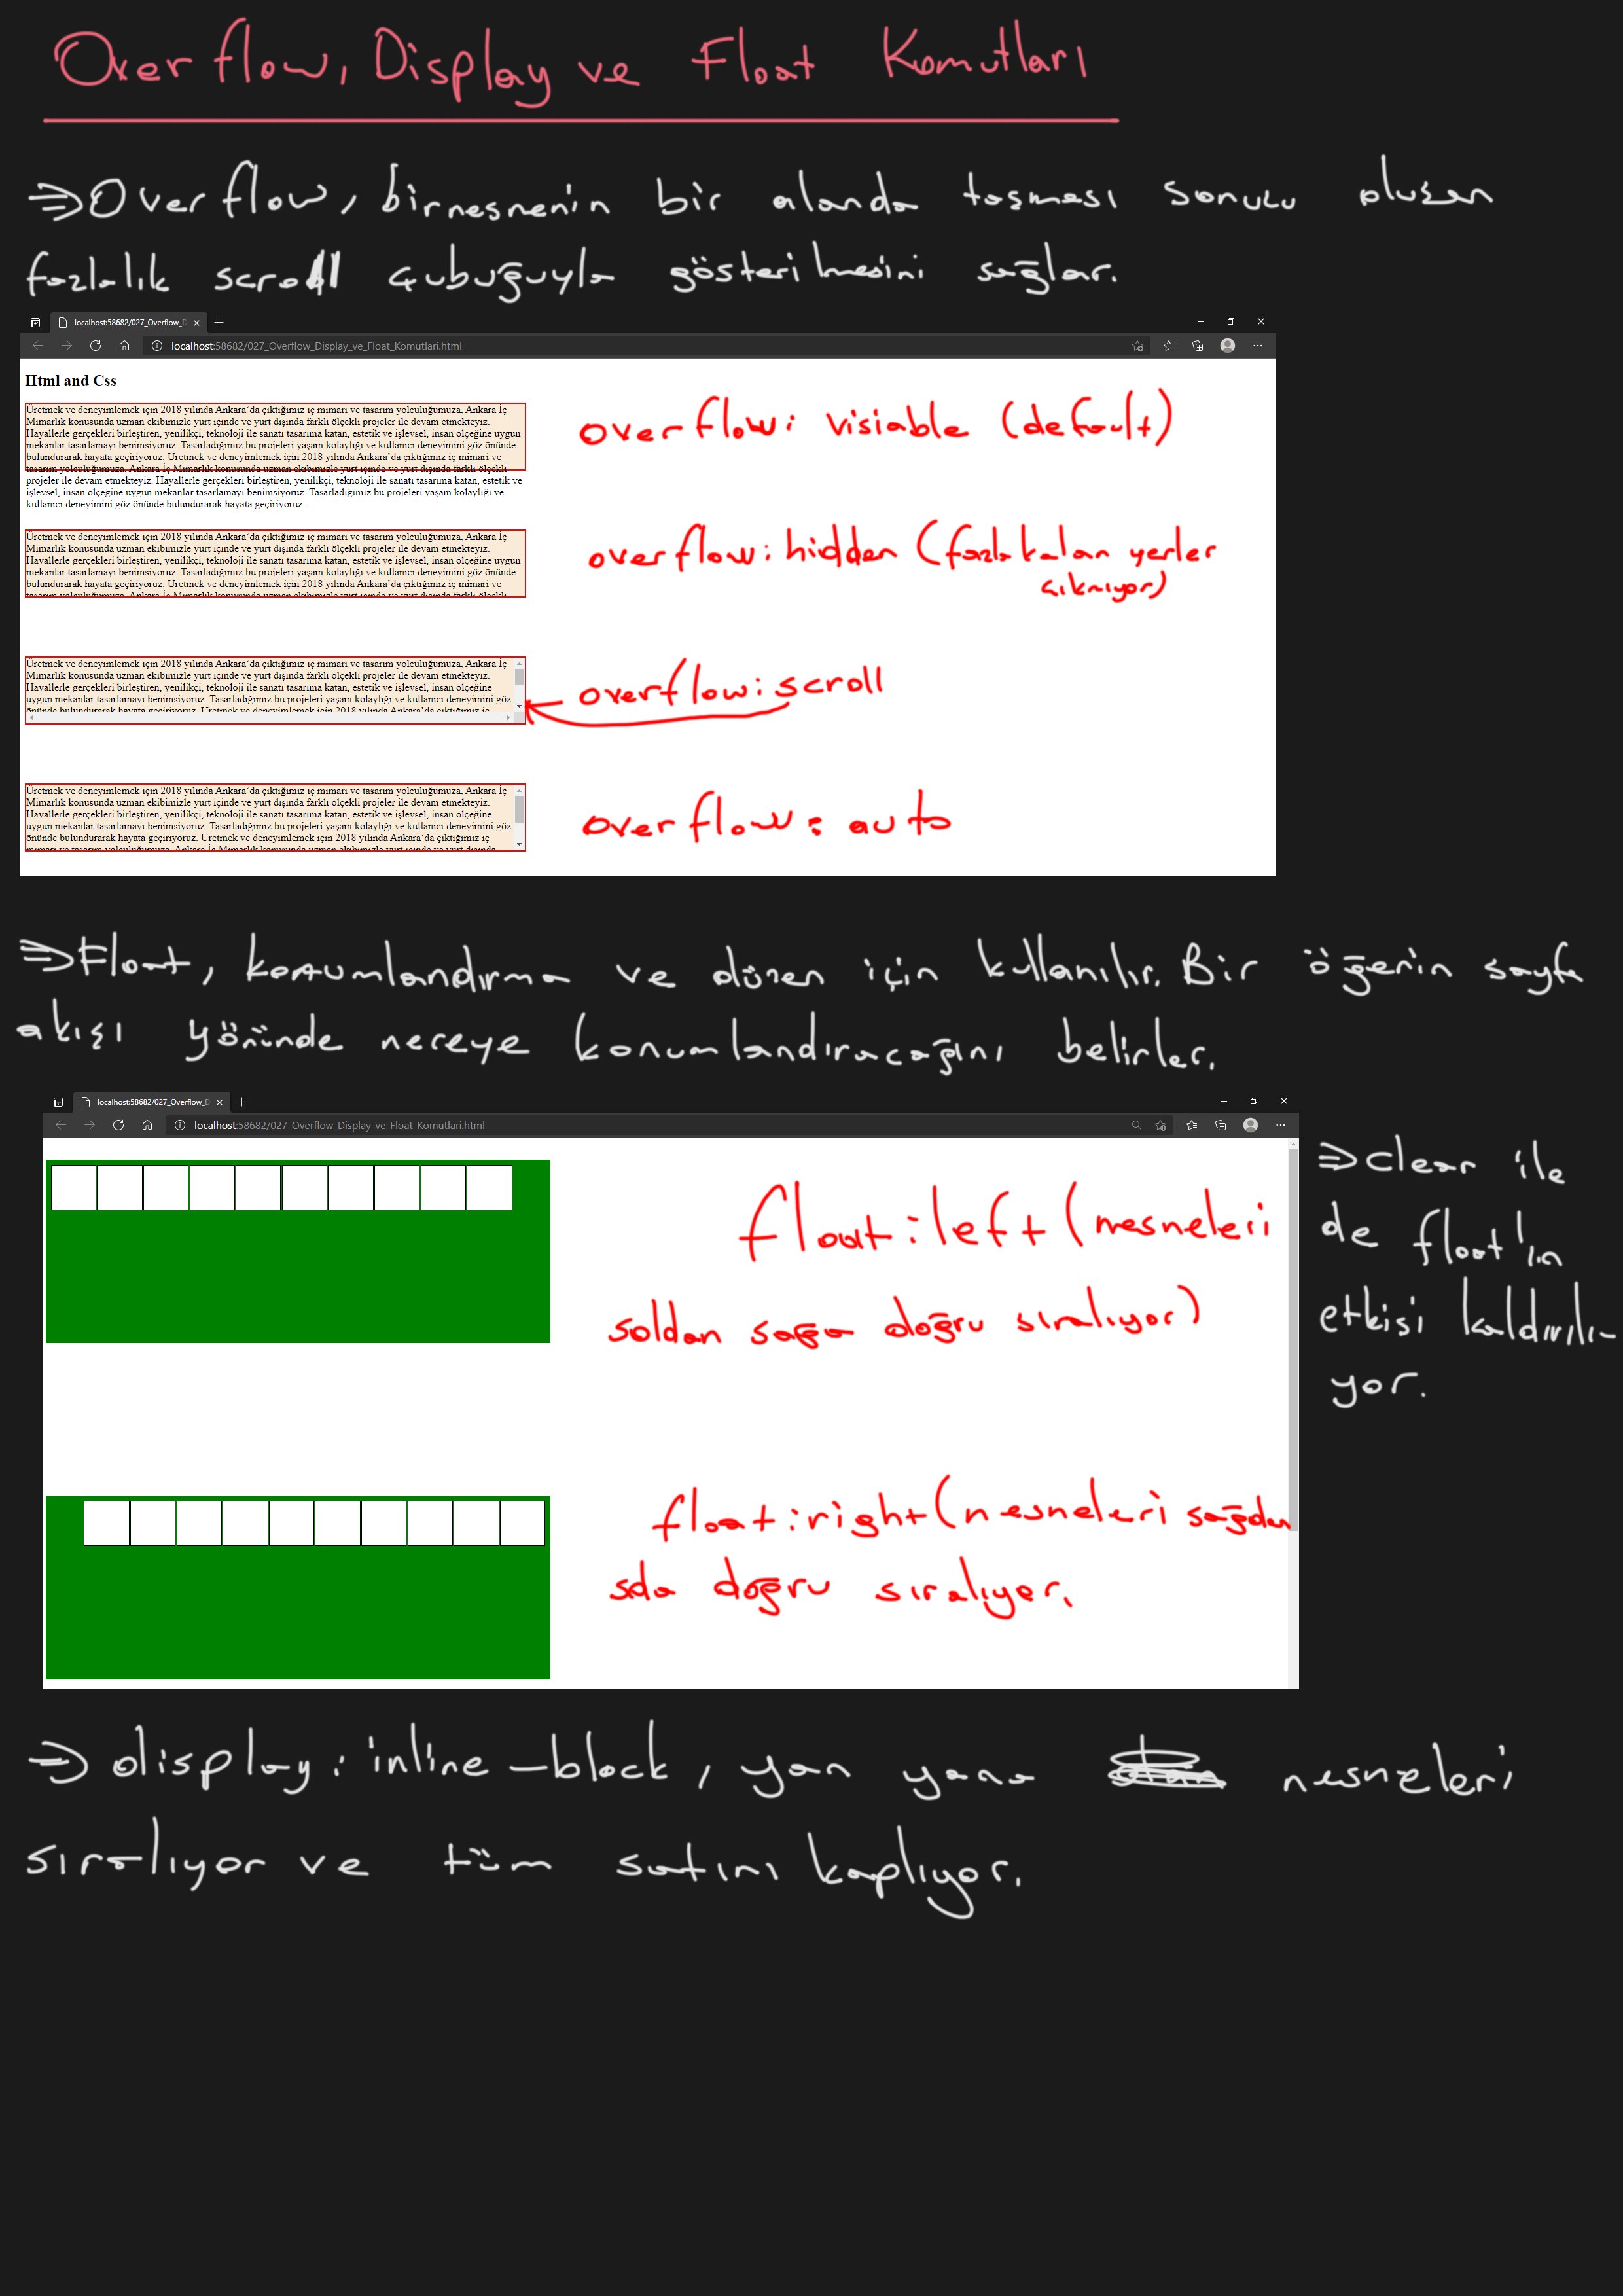 Overflow, Display ve Float Komutları
⇒Overflow, bir nesnenin bir alanda taşması sonucu oluşan
fazlalık scroll çubuğuyla gösterilmesini sağlar.
localhost:58682/027_Overflow_D
localhost:58682/027_Overflow_Display_ve_Float_Komutlari.html
Html and Css
Üretmek ve deneyimlemek için 2018 yılında Ankara'da çıktığımız iç mimari ve tasarım yolculuğumuza, Ankara İç
Mimarlık konusunda uzman ekibimizle yurt içinde ve yurt dışında farklı ölçekli projeler ile devam etmekteyiz.
Hayallerle gerçekleri birleştiren, yenilikçi, teknoloji ile sanatı tasarıma katan, estetik ve işlevsel, insan ölçeğine uygun
mekanlar tasarlamayı benimsiyoruz. Tasarladığımız bu projeleri yaşam kolaylığı ve kullanıcı deneyimini göz önünde
bulundurarak hayata geçiriyoruz. Üretmek ve deneyimlemek için 2018 yılında Ankara'da çıktığımız iç mimari ve
tasarım yolculuğumuza, Ankara İç Mimarlık konusunda uzman ekibimizle yurt içinde ve yurt dışında farklı ölçekli
projeler ile devam etmekteyiz. Hayallerle gerçekleri birleştiren, yenilikçi, teknoloji ile sanatı tasarıma katan, estetik ve
işlevsel, insan ölçeğine uygun mekanlar tasarlamayı benimsiyoruz. Tasarladığımız bu projeleri yaşam kolaylığı ve
kullanıcı deneyimini göz önünde bulundurarak hayata geçiriyoruz.
overflow: visiable (default)
Üretmek ve deneyimlemek için 2018 yılında Ankara'da çıktığımız iç mimari ve tasarım yolculuğumuza, Ankara İç
Mimarlık konusunda uzman ekibimizle yurt içinde ve yurt dışında farklı ölçekli projeler ile devam etmekteyiz.
Hayallerle gerçekleri birleştiren, yenilikçi, teknoloji ile sanatı tasarıma katan, estetik ve işlevsel, insan ölçeğine uygun
mekanlar tasarlamayı benimsiyoruz. Tasarladığımız bu projeleri yaşam kolaylığı ve kullanıcı deneyimini göz önünde
bulundurarak hayata geçiriyoruz. Üretmek ve deneyimlemek için 2018 yılında Ankara'da çıktığımız iç mimari ve
tasarım yolculuğumuza, Ankara İç Mimarlık konusunda uzman ekibimizle yurt içinde ve yurt dışında farklı ölçekli
overflow: hidden (fazla kalan yerler
çıkmıyor)
Üretmek ve deneyimlemek için 2018 yılında Ankara'da çıktığımız iç mimari ve tasarım yolculuğumuza, Ankara İç
Mimarlık konusunda uzman ekibimizle yurt içinde ve yurt dışında farklı ölçekli projeler ile devam etmekteyiz.
Hayallerle gerçekleri birleştiren, yenilikçi, teknoloji ile sanatı tasarıma katan, estetik ve işlevsel, insan ölçeğine
uygun mekanlar tasarlamayı benimsiyoruz. Tasarladığımız bu projeleri yaşam kolaylığı ve kullanıcı deneyimini göz
önünde bulundurarak hayata geçiriyoruz. Üretmek ve deneyimlemek için 2018 yılında Ankara'da çıktığımız iç
overflow: scroll
Üretmek ve deneyimlemek için 2018 yılında Ankara'da çıktığımız iç mimari ve tasarım yolculuğumuza, Ankara İç
Mimarlık konusunda uzman ekibimizle yurt içinde ve yurt dışında farklı ölçekli projeler ile devam etmekteyiz.
Hayallerle gerçekleri birleştiren, yenilikçi, teknoloji ile sanatı tasarıma katan, estetik ve işlevsel, insan ölçeğine
uygun mekanlar tasarlamayı benimsiyoruz. Tasarladığımız bu projeleri yaşam kolaylığı ve kullanıcı deneyimini göz
önünde bulundurarak hayata geçiriyoruz. Üretmek ve deneyimlemek için 2018 yılında Ankara'da çıktığımız iç
mimari ve tasarım yolculuğumuza, Ankara İç Mimarlık konusunda uzman ekibimizle yurt içinde ve yurt dışında
overflow: auto
⇒Float, konumlandırma ve düzen için kullanılır. Bir öğenin sayfa
akışı yönünde nereye konumlandıracağını belirler.
localhost:58682/027_Overflow_D
localhost:58682/027_Overflow_Display_ve_Float_Komutlari.html
float: left (nesneleri
soldan sağa doğru sıralıyor)
float: right (nesneleri sağdan
sola doğru sıralıyor.
⇒clear ile
de float'ın
etkisi kaldırılı-
yor.
⇒ display: inline-block, yan yana nesneleri
sıralıyor ve tüm satırı kaplıyor.